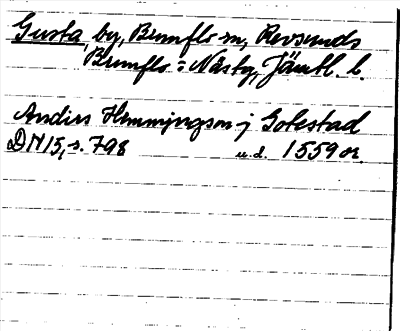 Gusta, by, Brunflo sn, Revsunds
Brunflo : Näsby, Jämtl. l.
Anders Hemmingson j Gobestad
DN 15, s. 798 u.d. 1559 or.